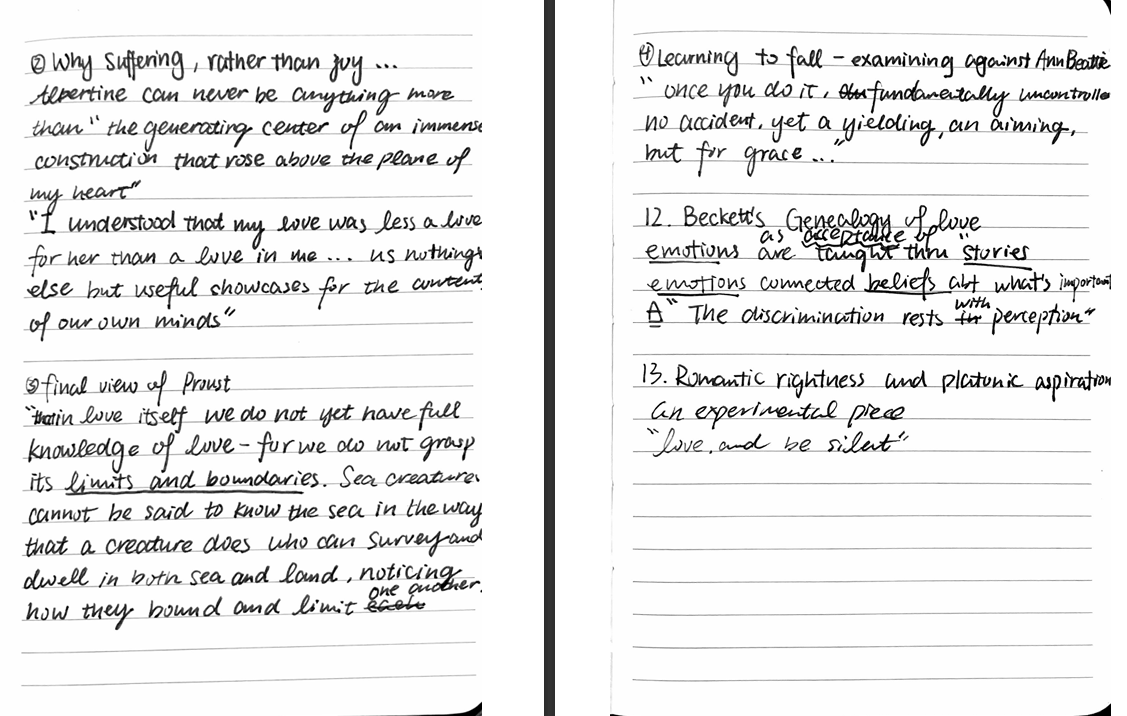 ② Why suffering, rather than joy ...
Albertine can never be anything more
than "the generating center of an immense
construction that rose above the plane of
my heart"
"I understood that my love was less a love
for her than a love in me ... us nothing
else but useful showcases for the content
of our own minds"
③ final view of Proust
"in love itself we do not yet have full
knowledge of love – for we do not grasp
its limits and boundaries. Sea creature
cannot be said to know the sea in the way
that a creature does who can survey and
dwell in both sea and land, noticing
how they bound and limit one another.
④ Learning to fall – examining against Ann Beattie
"once you do it, fundamentally uncontrolle
no accident, yet a yielding, an aiming,
but for grace ..."
12. Beckett's Genealogy of love
as acceptance of
emotions are taught thru "stories
emotions connected beliefs abt what's important
A "The discrimination rests with perception"
13. Romantic rightness and platonic aspiration
an experimental piece
"love, and be silent"